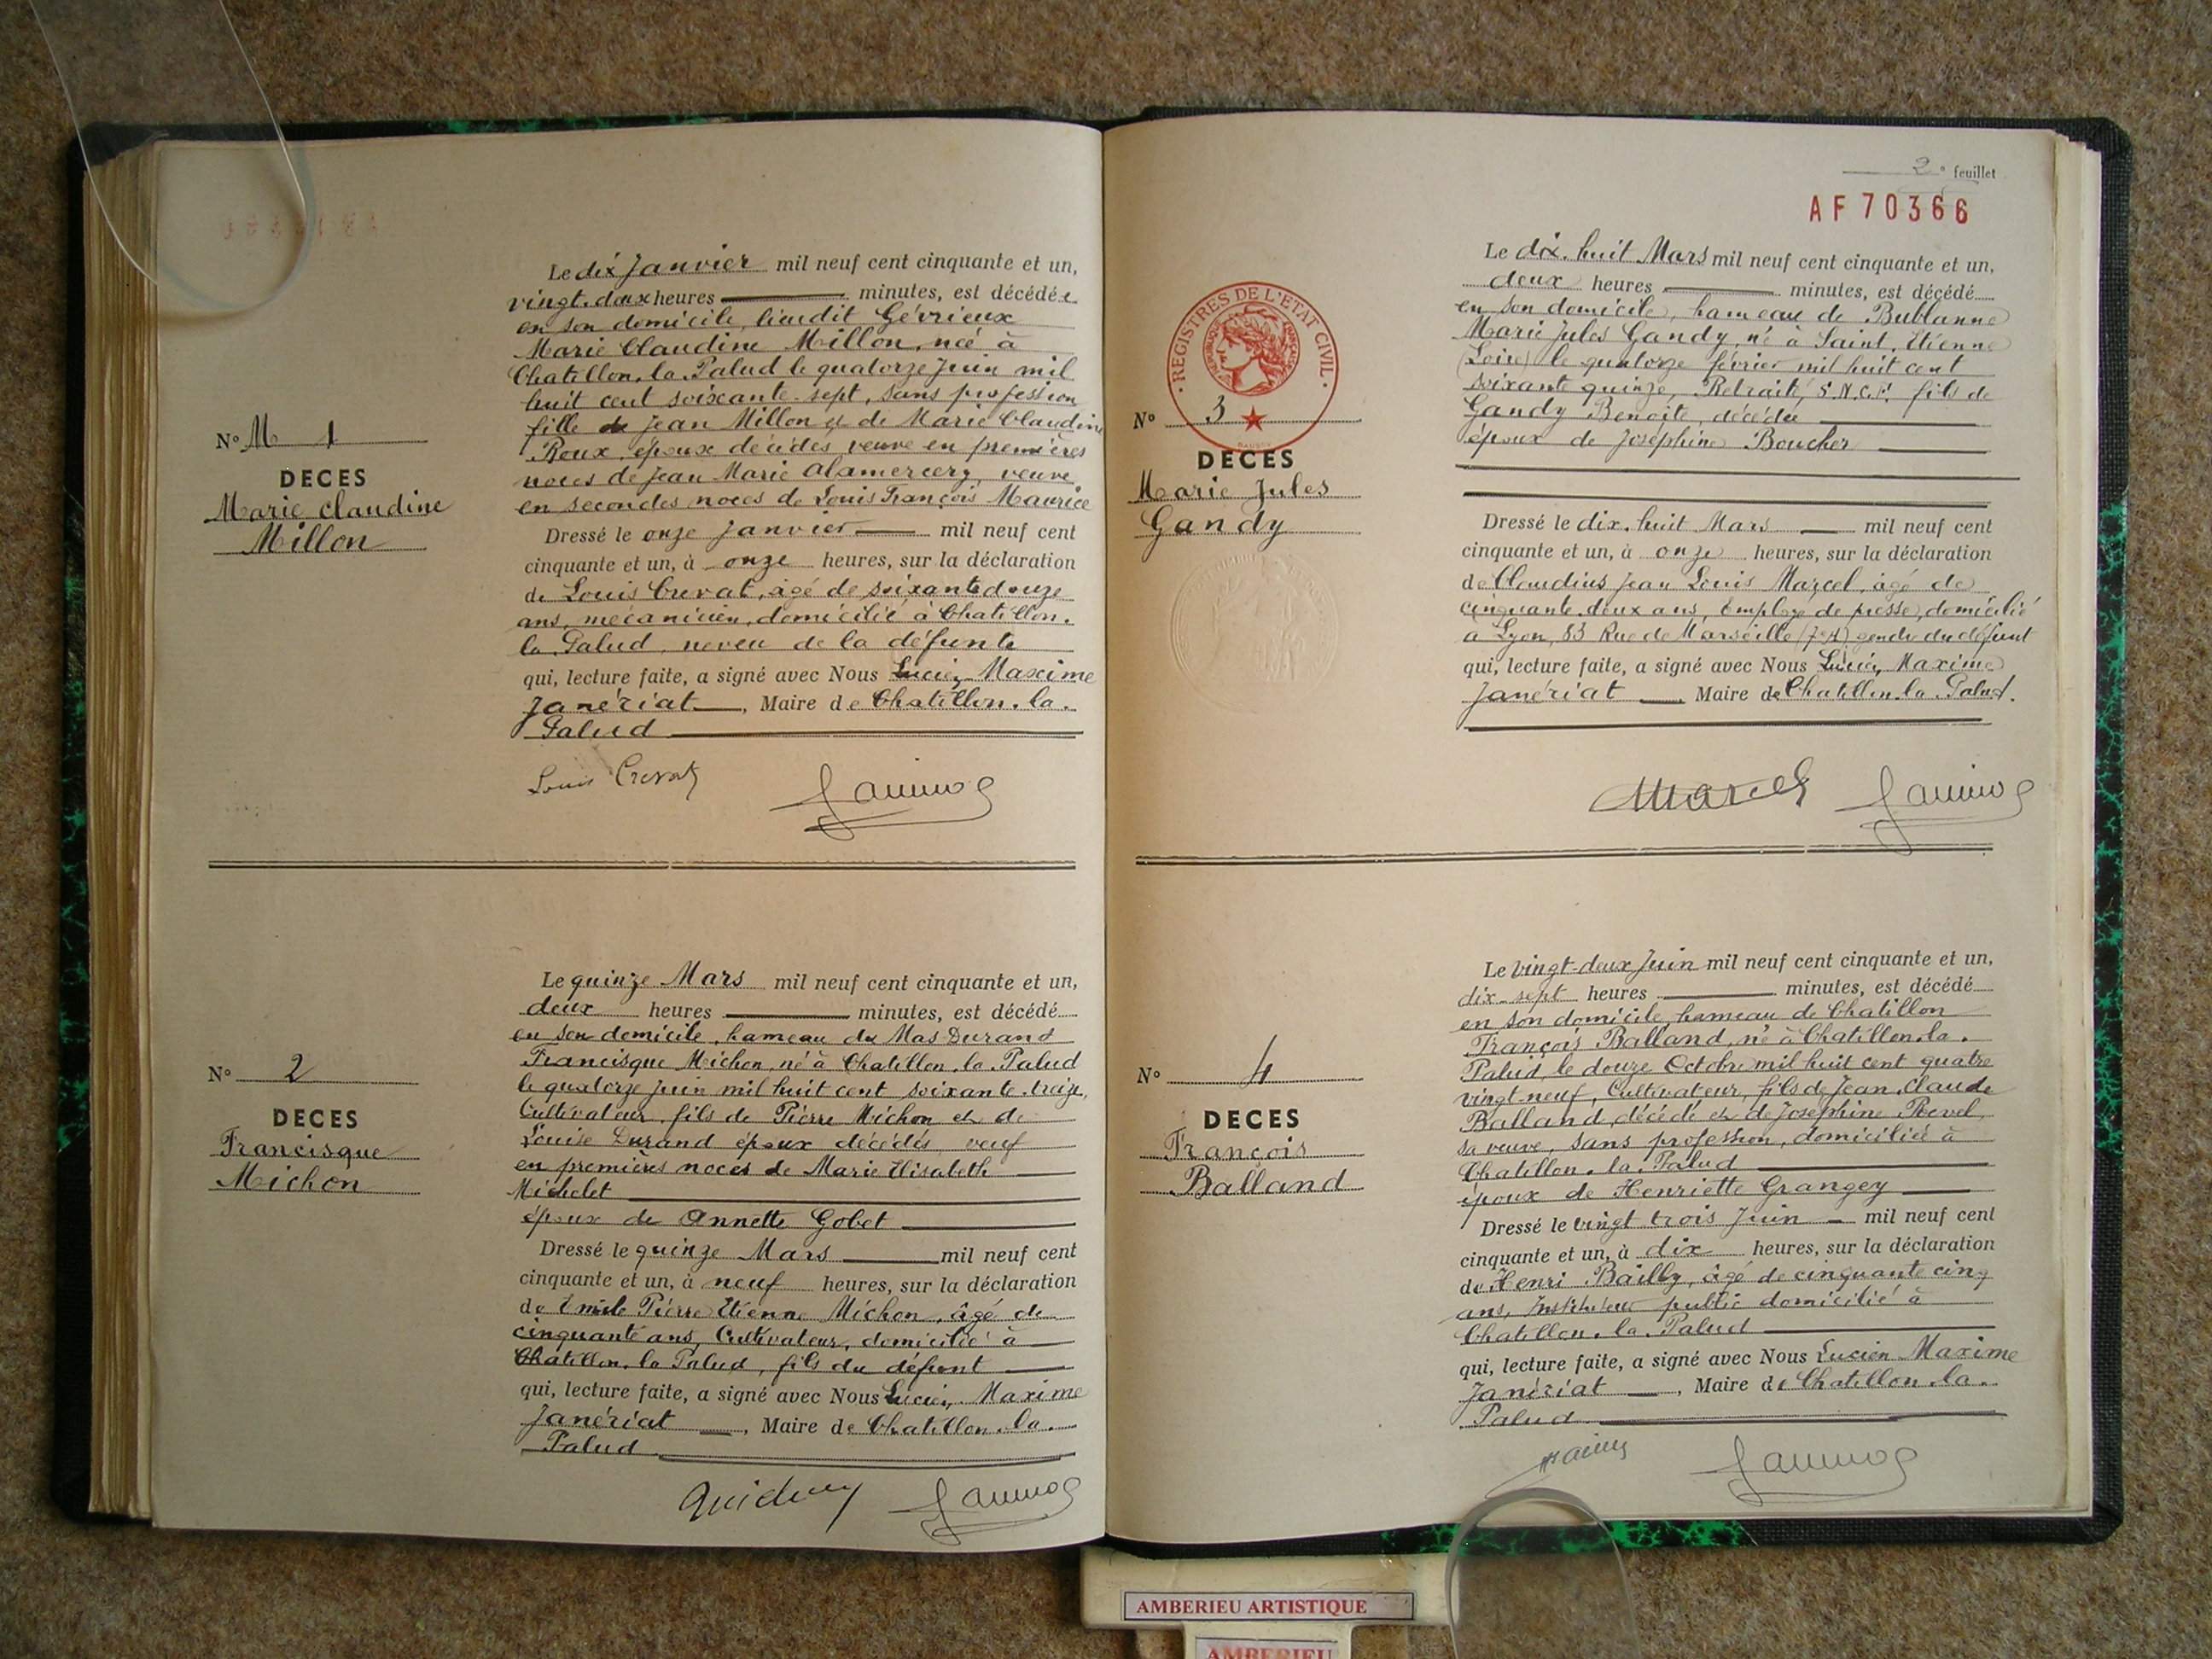 N° M 1
DECES
Marie Claudine
Millon
Le dix Janvier mil neuf cent cinquante et un,
vingt-deux heures minutes, est décédée
en son domicile, lieudit Gévrieux
Marie Claudine Millon, née à
Chatillon. la. Palud le quatorze Juin mil
huit cent soixante-sept, sans profession
fille de Jean Millon et de Marie Claudine
Roux, époux décédés, veuve en premières
noces de Jean Marie Alamercery, veuve
en secondes noces de Louis François Maurice
Dressé le onze Janvier mil neuf cent
cinquante et un, à onze heures, sur la déclaration
de Louis Crevat, âgé de soixante douze
ans, mécanicien, domicilié à Chatillon.
la Palud, neveu de la défunte
qui, lecture faite, a signé avec Nous Lucien Maxime
Janériat, Maire de Chatillon. la.
Palud
Louis Crevat
N° 2
DECES
Francisque
Michon
Le quinze Mars mil neuf cent cinquante et un,
deux heures minutes, est décédé
en son domicile, hameau du Mas Durand
Francisque Michon, né à Chatillon. la. Palud
le quatorze Juin mil huit cent soixante. treize,
Cultivateur, fils de Pierre Michon et de
Louise Durand époux décédés, veuf
en premières noces de Marie Elisabeth
Michelet
époux de Annette Gobet
Dressé le quinze Mars mil neuf cent
cinquante et un, à neuf heures, sur la déclaration
de Emile Pierre Etienne Michon, âgé de
cinquante ans, Cultivateur, domicilié à
Chatillon. la Palud, fils du défunt
qui, lecture faite, a signé avec Nous Lucien Maxime
Janériat, Maire de Chatillon. la.
Palud
2e feuillet
AF 70366
REGISTRES DE L'ETAT CIVIL
N° 3
DECES
Marie Jules
Gandy
Le dix. huit Mars mil neuf cent cinquante et un,
deux heures minutes, est décédé
en son domicile, hameau de Bublanne
Marie Jules Gandy, né à Saint. Etienne
(Loire) le quatorze février mil huit cent
soixante quinze, Retraité S.N.C.F. fils de
Gandy Benoîte, décédée
époux de Joséphine Boucher
Dressé le dix. huit Mars mil neuf cent
cinquante et un, à onze heures, sur la déclaration
de Claudius Jean Louis Marcel, âgé de
cinquante. deux ans, Employé de presse, domicilié
à Lyon, 83 Rue de Marseille (7eA) gendre du défunt
qui, lecture faite, a signé avec Nous Lucien Maxime
Janériat, Maire de Chatillon. la. Palud.
Marcel
N° 4
DECES
François
Balland
Le vingt-deux Juin mil neuf cent cinquante et un,
dix-sept heures minutes, est décédé
en son domicile, hameau de Chatillon
François Balland, né à Chatillon. la.
Palud, le douze Octobre mil huit cent quatre
vingt-neuf, Cultivateur, fils de Jean. Claude
Balland, décédé et de Joséphine Revel,
sa veuve, sans profession, domiciliée à
Chatillon. la. Palud
époux de Henriette Grangey
Dressé le vingt trois Juin mil neuf cent
cinquante et un, à dix heures, sur la déclaration
de Henri Bailly, âgé de cinquante cinq
ans, Instituteur public domicilié à
Chatillon. la. Palud
qui, lecture faite, a signé avec Nous Lucien Maxime
Janériat, Maire de Chatillon. la.
Palud
AMBERIEU ARTISTIQUE
AMBERIEU